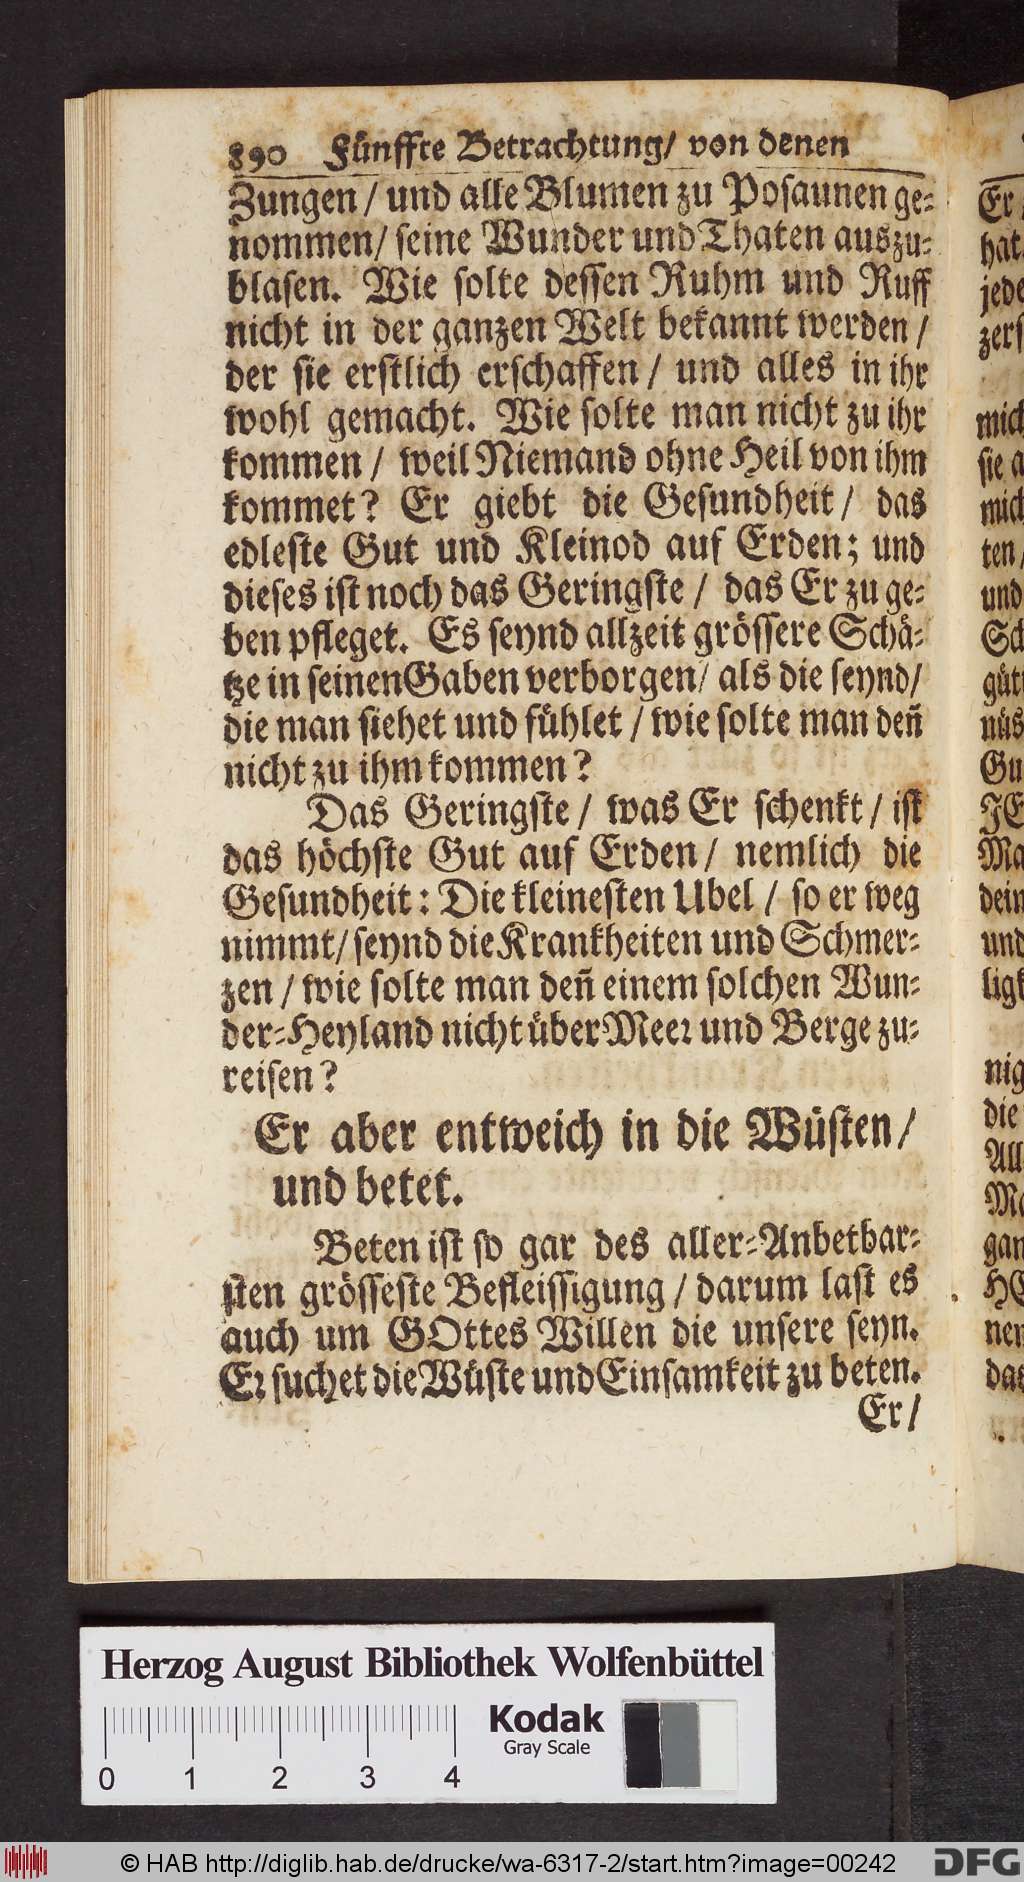 890 Fünffte Betrachtung/ von denen
Zungen / und alle Blumen zu Posaunen ge-
nommen/ seine Wunder und Thaten auszu-
blasen. Wie solte dessen Ruhm und Ruff
nicht in der ganzen Welt bekannt werden /
der sie erstlich erschaffen / und alles in ihr
wohl gemacht. Wie solte man nicht zu ihr
kommen / weil Niemand ohne Heil von ihm
kommet? Er giebt die Gesundheit / das
edleste Gut und Kleinod auf Erden; und
dieses ist noch das Geringste / das Er zu ge-
ben pfleget. Es seynd allzeit grössere Schä-
tze in seinen Gaben verborgen/ als die seynd/
die man siehet und fühlet / wie solte man deñ
nicht zu ihm kommen?
Das Geringste / was Er schenkt / ist
das höchste Gut auf Erden / nemlich die
Gesundheit: Die kleinesten Ubel / so er weg
nimmt/ seynd die Krankheiten und Schmer-
zen / wie solte man deñ einem solchen Wun-
der-Heyland nicht über Meer und Berge zu-
reisen?
Er aber entweich in die Wüsten /
und betet.
Beten ist so gar des aller-Anbetbar-
sten grösseste Befleissigung / darum last es
auch um GOttes Willen die unsere seyn.
Er suchet die Wüste und Einsamkeit zu beten.
Er /
Er /
hat
jede
zers
mich
sie a
mich
ten /
und
Sch
güt
nüs
Gu
JE
Ma
dein
und
ligk
nig
die
All
Ma
gan
HE
nen
das
Herzog August Bibliothek Wolfenbüttel
Kodak
Gray Scale
0 1 2 3 4
© HAB http://diglib.hab.de/drucke/wa-6317-2/start.htm?image=00242
DFG